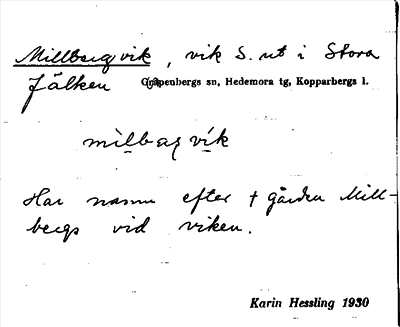 Millbergvik, vik S. ut i Stora
Jälken Grȧpenbergs sn, Hedemora tg, Kopparbergs l.
mìlbaʒvík
Har namn efter † gården Mill-
bergs vid viken.
Karin Hessling 1930